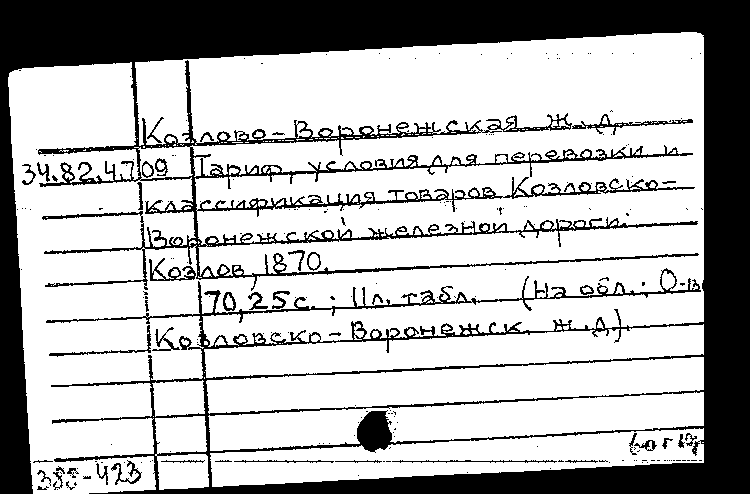 Козлово-Воронежская ж.д.
34.82.4.709 Тариф, условия для перевозки и
классификация товаров Козловско-
Воронежской железной дороги.
Козлов, 1870.
70,25с.; 11л. табл. (На обл.: О-во
Козловско-Воронежск. ж.д.).
388-423